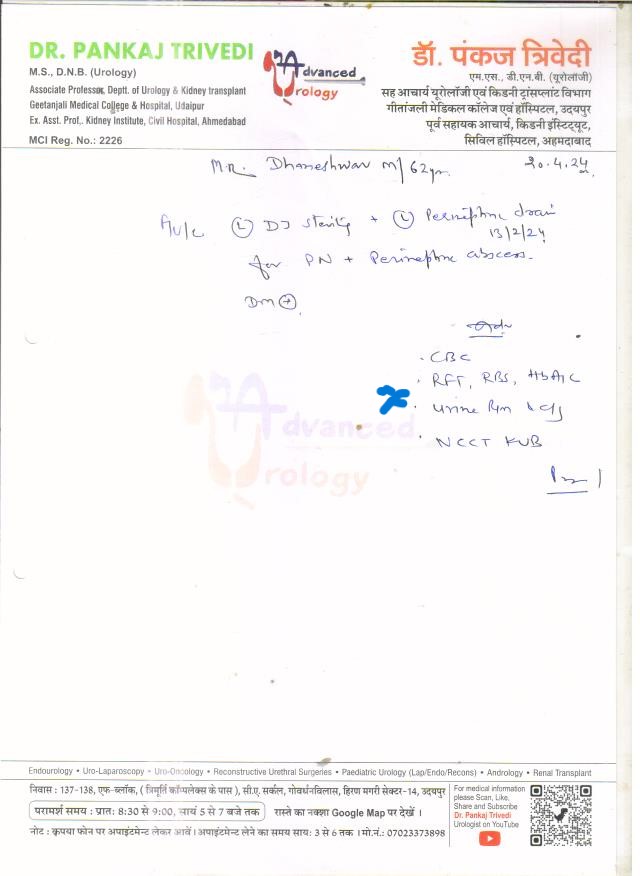 DR. PANKAJ TRIVEDI
M.S., D.N.B. (Urology)
Associate Professor, Deptt. of Urology & Kidney transplant
Geetanjali Medical College & Hospital, Udaipur
Ex. Asst. Prof.. Kidney Institute, Civil Hospital, Ahmedabad
MCI Reg. No.: 2226
Advanced
Urology
डॉ. पंकज त्रिवेदी
एम.एस., डी.एन.बी. (यूरोलॉजी)
सह आचार्य यूरोलॉजी एवं किडनी ट्रांसप्लांट विभाग
गीतांजली मेडिकल कॉलेज एवं हॉस्पिटल, उदयपुर
पूर्व सहायक आचार्य, किडनी इंस्टिट्यूट,
सिविल हॉस्पिटल, अहमदाबाद
Mr. Dhaneshwar M/62yr.
20.4.24
(L) DJ stenting + (L) Perinephric drain
13/2/24
for PN + Perinephric abscess.
DM (+)
CBC
RFT, RBS, HbA1C
Urine R/m & c/s
NCCT KUB
Advanced
Urology
Endourology • Uro-Laparoscopy • Uro-Oncology • Reconstructive Urethral Surgeries • Paediatric Urology (Lap/Endo/Recons) • Andrology • Renal Transplant
निवास : 137-138, एफ-ब्लॉक, ( त्रिमूर्ति कॉम्पलेक्स के पास ), सी.ए. सर्कल, गोवर्धनविलास, हिरण मगरी सेक्टर-14, उदयपुर
परामर्श समय : प्रात: 8:30 से 9:00, सायं 5 से 7 बजे तक रास्ते का नक्शा Google Map पर देखें ।
नोट : कृपया फोन पर अपाइंटमेन्ट लेकर आवें । अपाइंटमेन्ट लेने का समय साय: 3 से 6 तक । मो.नं.: 07023373898
For medical information
please Scan, Like,
Share and Subscribe
Dr. Pankaj Trivedi
Urologist on YouTube